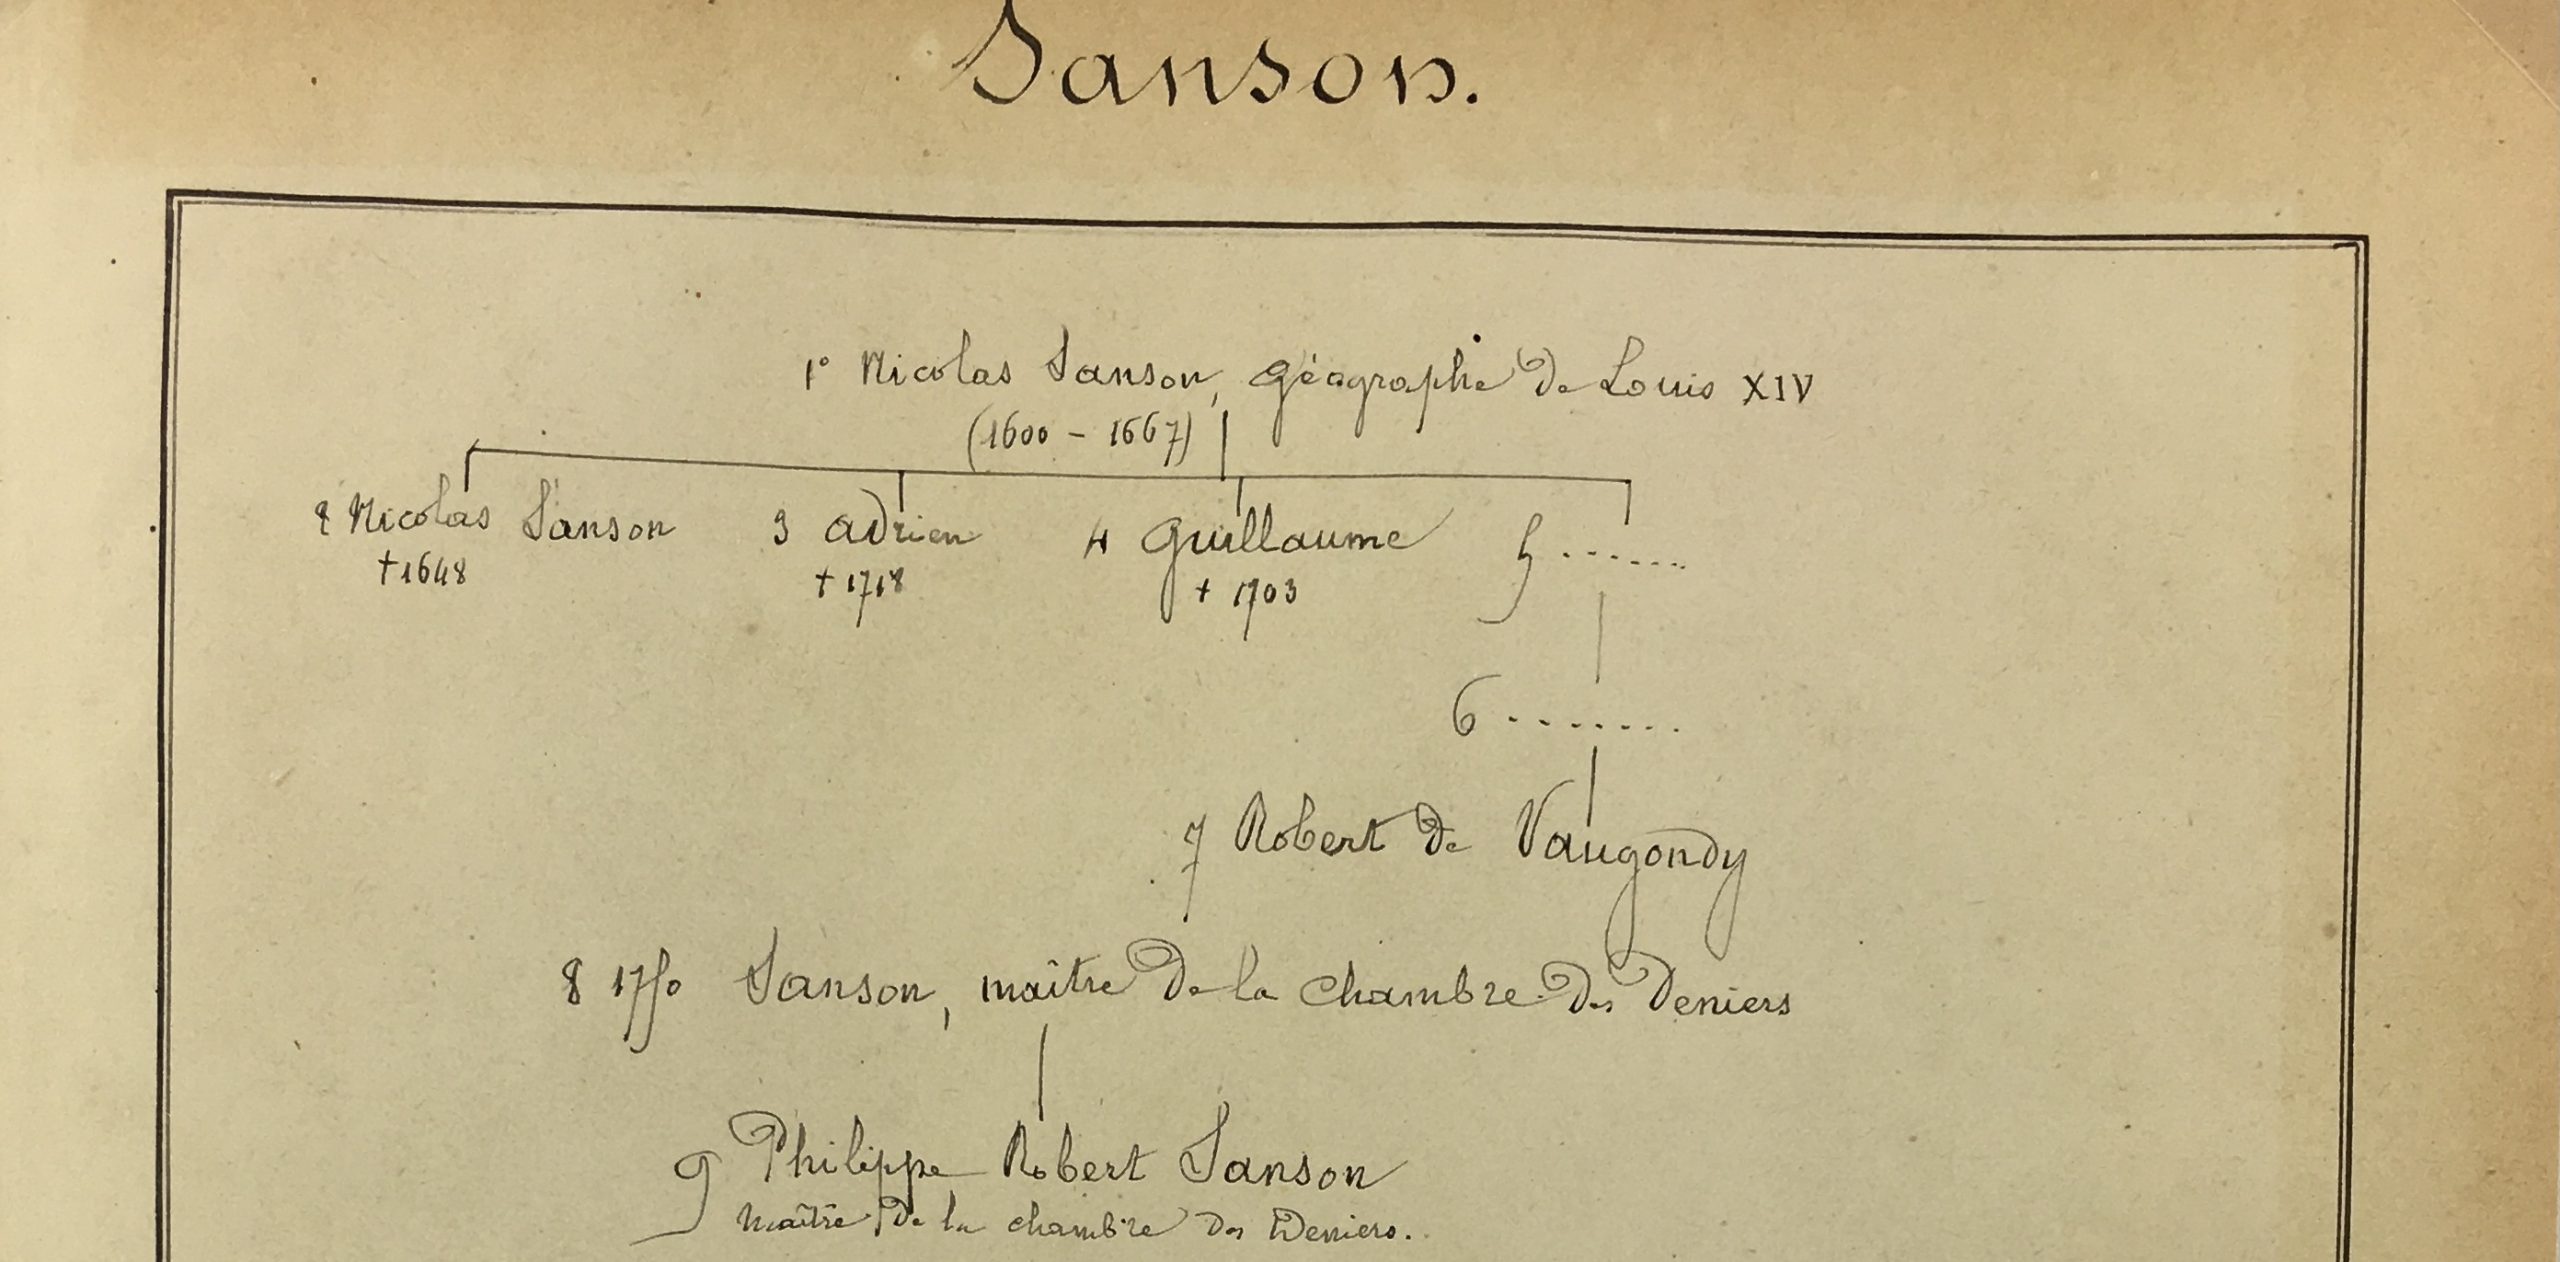 Sanson.
1° Nicolas Sanson, géographe de Louis XIV
(1600 - 1667)
2 Nicolas Sanson 3 adrien 4 Guillaume 5 .......
+1648 + 1718 + 1703
6 ........
7 Robert de Vaugondy
8 1750 Sanson, maître de la chambre des Deniers
9 Philippe Robert Sanson
maître de la chambre des Deniers.